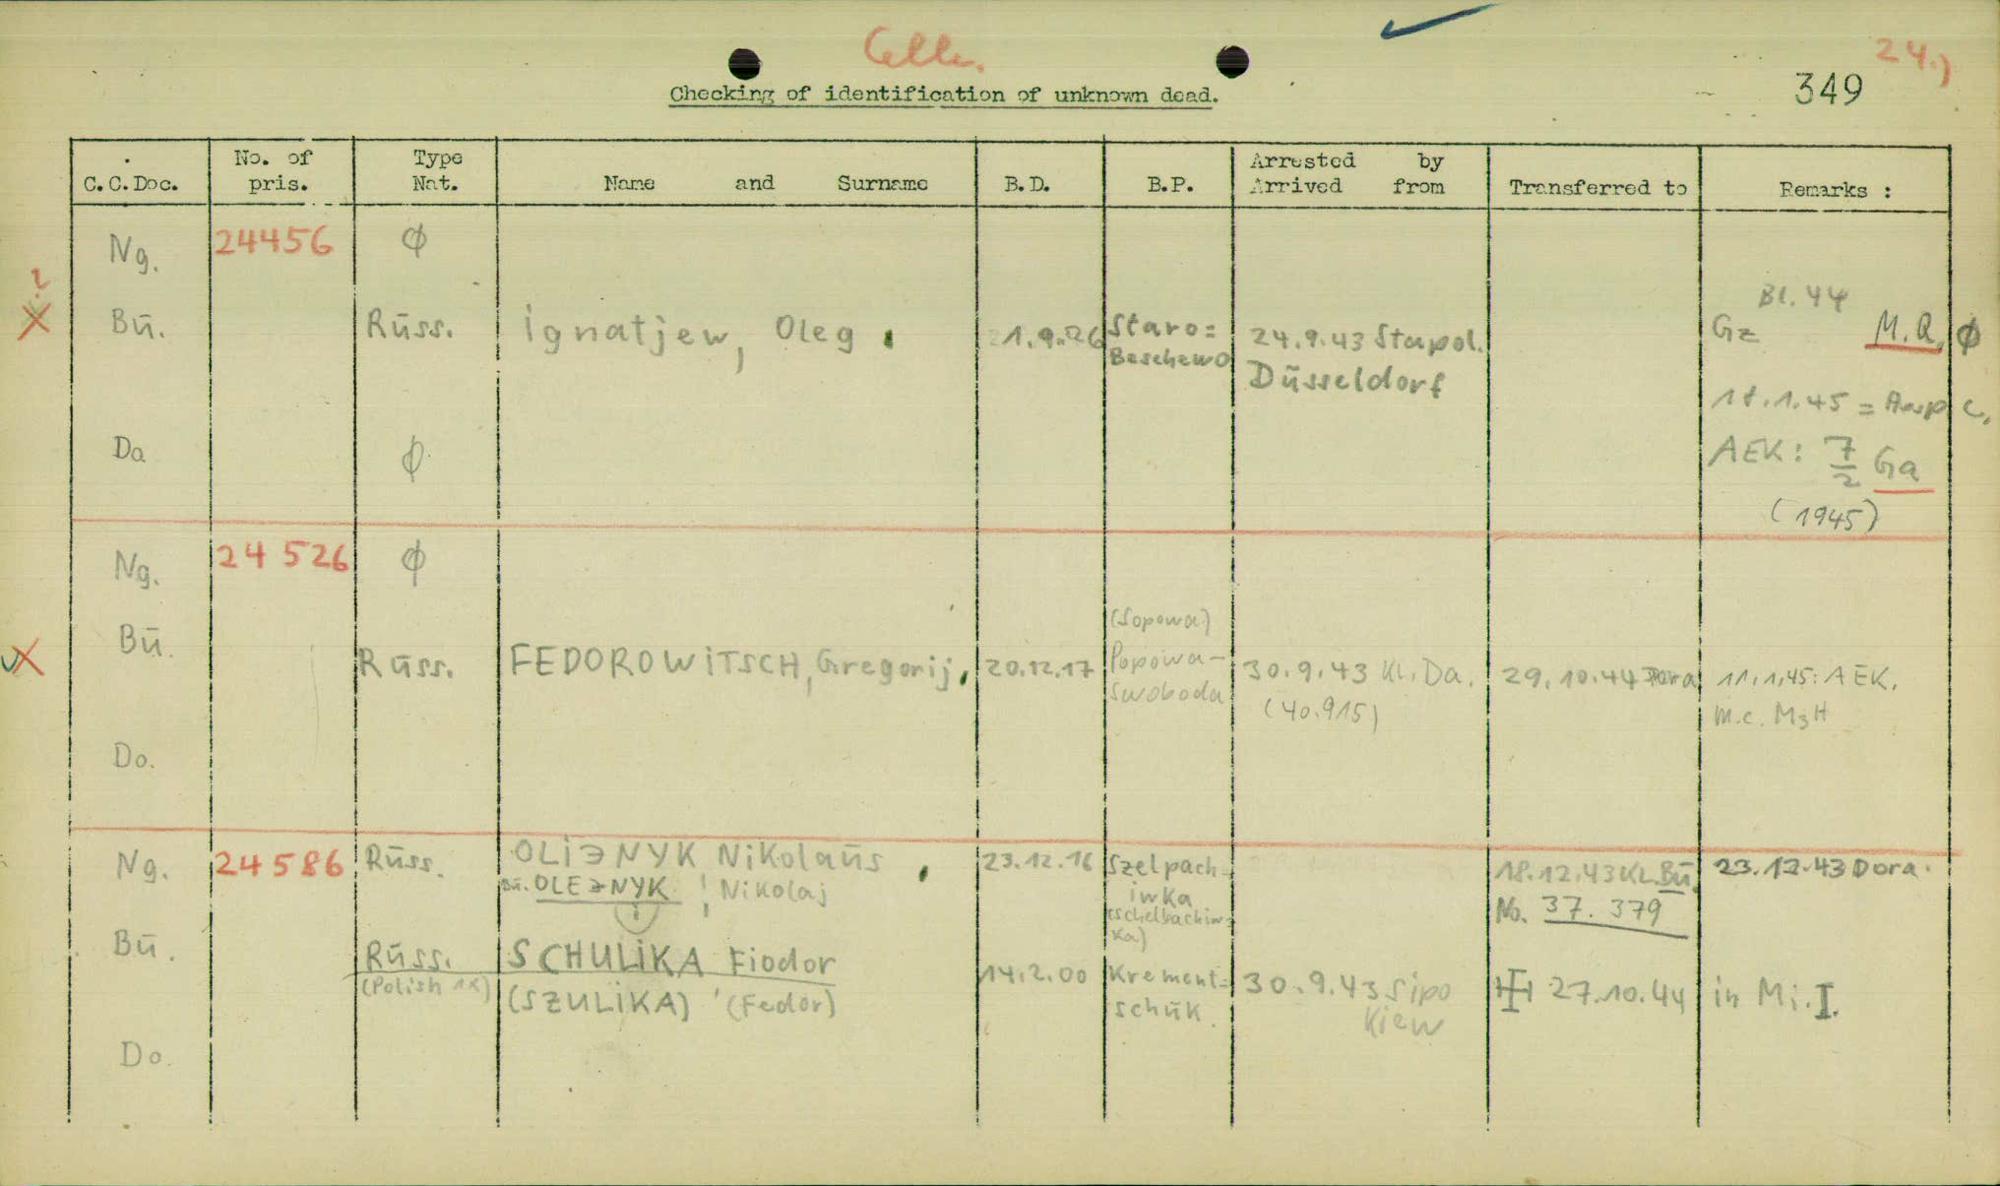 Celle.
24.)
349
Checking of identification of unknown dead.
C.C.Doc. No. of pris. Type Nat. Name and Surname B.D. B.P. Arrested by Arrived from Transferred to Remarks :
Ng. 24456 ϕ
Bl. 44
? X Bū. Rūss. Ignatjew, Oleg 1.9.26 Staro= Beschewo 24.9.43 Stapol. Düsseldorf Gz M.Q. ϕ
18.1.45 =
Da ϕ AEK: 7/2 Ga
(1945)
Ng. 24 526 ϕ
(Sopowa)
X Bū. Rūss. FEDOROWITSCH, Gregorij, 20.12.17 Popowa- swoboda 30.9.43 Kl. Da. (40.915) 29.10.44 Dora 11.1.45: AEK. m.c. M3H
Do.
Ng. 24586 Rūss. OLIJNYK Nikolaūs 23.12.16 Szelpach= iwka 18.12.43 KL.Bū. 23.12.43 Dora.
Bū. OLEJNYK, Nikolaj (schelbachiw= ka) No. 37. 379
i
Bū. Rūss. SCHULIKA Fiodor 14.2.00 Krement= schūk. 30.9.43 Sipo Kiew 27.10.44 in Mi. I.
(Polish 1x) (SZULIKA) (Fedor)
Do.